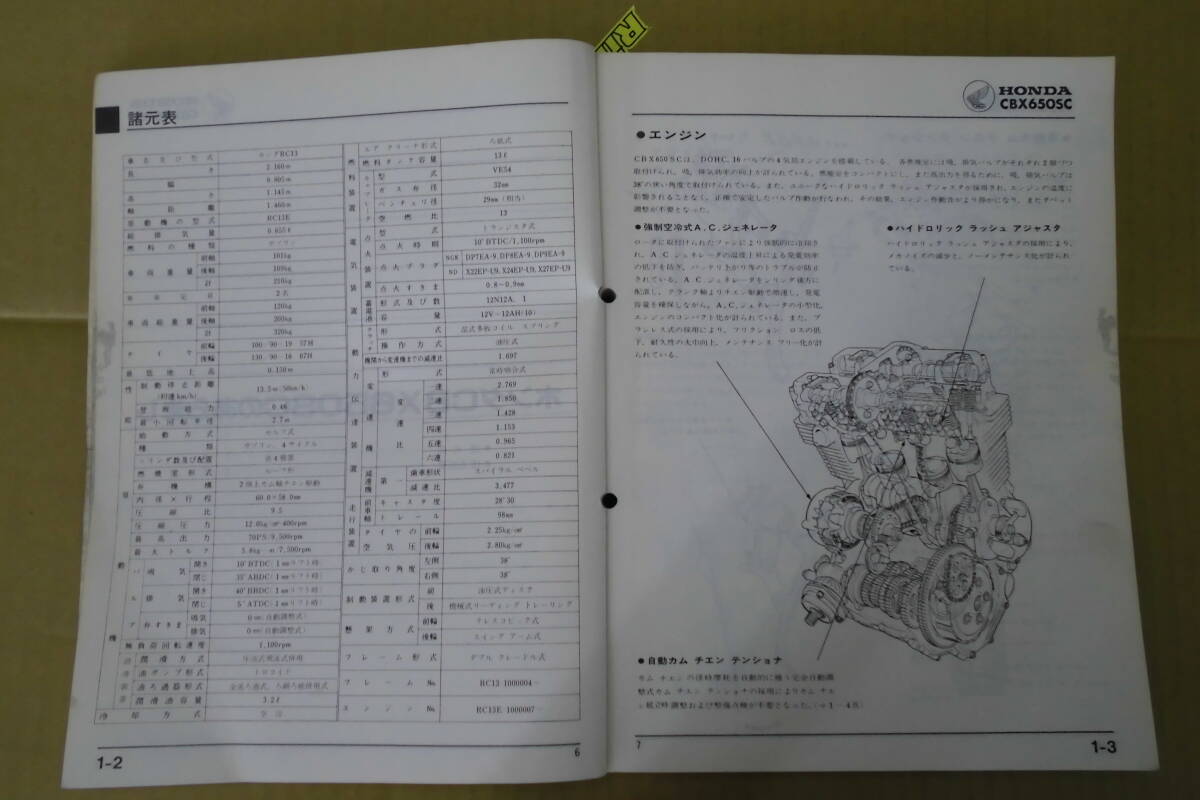 諸元表
車名及び型式 ホンダRC13
長さ 2.160m
幅 0.805m
高さ 1.145m
軸距離 1.460m
原動機の型式 RC13E
総排気量 0.655ℓ
燃料の種類 ガソリン
車両重量 前輪 101kg
後輪 109kg
計 210kg
乗車定員 2名
車両総重量 前輪 120kg
後輪 200kg
計 320kg
タイヤ 前輪 100/90-19 57H
後輪 130/90-16 67H
最低地上高 0.150m
性能 制動停止距離 (初速km/h) 13.5m(50km/h)
登坂能力 0.46
最小回転半径 2.7m
始動方式 セルフ式
種類 ガソリン、4サイクル
シリンダ数及び配置
燃焼室形式 ルーフ形
弁機構 2頭上カム軸チエン駆動
内径×行程 60.0×58.0mm
圧縮比 9.5
圧縮圧力 12.0kg/㎠-400rpm
最高出力 70PS/9,500rpm
最大トルク 5.8kg-m/7,500rpm
バルブ 吸気 開き 10°BTDC(1mmリフト時)
閉じ 35°ABDC(1mmリフト時)
排気 開き 40°BBDC(1mmリフト時)
閉じ 5°ATDC(1mmリフト時)
弁すきま 吸気 0mm(自動調整式)
排気 0mm(自動調整式)
無負荷回転速度 1,100rpm
潤滑方式 圧送式飛沫式併用
油ポンプ形式 トロコイド
油ろ過形式
潤滑油容量 3.2ℓ
冷却方式 空冷
燃料装置 エアクリーナ形式
燃料タンク容量 13ℓ
型式 VE54
ガス弁径 32mm
ベンチュリ径 29mm(相当)
空燃比 13
電気装置 点火装置 型式 トランジスタ式
点火時期 10°BTDC/1,100rpm
点火プラグ NGK DP7EA-9, DP8EA-9, DP9EA-9
ND X22EP-U9, X24EP-U9, X27EP-U9
点火すきま 0.8~0.9mm
蓄電池 形式及び数 12N12A, 1
容量 12V-12AH(10)
動力伝達装置 クラッチ 形式 湿式多板コイル スプリング
操作方式 油圧式
機関から変速機までの減速比 1.697
変速機 形式 常時噛合式
変速比 一速 2.769
二速 1.850
三速 1.428
四速 1.153
五速 0.965
六速 0.821
減速機 第一 歯車形状 スパイラル ベベル
減速比 3.477
走行装置 前車軸 キャスタ度 28°30
トレール 98mm
タイヤの空気圧 前輪 2.25kg/㎠
後輪 2.80kg/㎠
かじ取り角度 左側 38°
右側 38°
制動装置形式 前 油圧式ディスク
後 機械式リーディング トレーリング
懸架方式 前輪 テレスコピック式
後輪 スイング アーム式
フレーム形式 ダブル クレードル式
フレームNo. RC13-1000004~
エンジンNo. RC13E-1000007~
1-2
6
HONDA
CBX650SC
●エンジン
CBX650SCは、DOHC, 16バルブの4気筒エンジンを搭載している。各燃焼室には吸、排気バルブがそれぞれ2個づつ
取付けられ、吸、排気効率の向上が計られている。燃焼室をコンパクトにし、また高出力を得るために、吸、排気バルブは
38°の狭い角度で取付けられている。また、ユニークなハイドロリック ラッシュ アジャスタが採用され、エンジンの温度に
影響されることなく、正確で安定したバルブ作動が行なわれ、その結果、エンジン作動音がより静かになり、またタペット
調整が不要となった。
●強制空冷式A.C.ジェネレータ
ロータに取付けられたファンにより強制的に冷却さ
れ、A.C.ジェネレータの温度上昇による発電効率
の低下を防ぎ、バッテリ上がり等のトラブルが防止
されている。A.C.ジェネレータをシリンダ後方に
配置し、クランク軸よりチエン駆動で増速し、発電
容量を確保しながら、A.C.ジェネレータの小型化、
エンジンのコンパクト化が計られている。また、ブ
ラシレス式の採用により、フリクション ロスの低
下、耐久性の大巾向上、メンテナンス フリー化が計
られている。
●ハイドロリック ラッシュ アジャスタ
ハイドロリック ラッシュ アジャスタの採用により、
メカノイズの減少と、ノーメンテナンス化が計られ
ている。
●自動カム チエン テンショナ
カム チエンの経時摩耗を自動的に補う完全自動調
整式カム チエン テンショナの採用によりカム チエ
ン組立時調整および整備点検が不要となった。(⇨1-4頁)
7
1-3